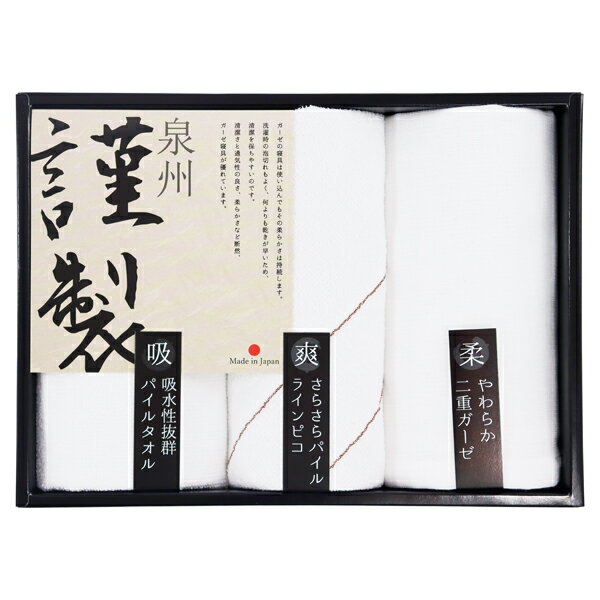 泉州
謹製
ガーゼの寝具は使い込んでもその柔らかさは持続します。
洗濯時の泡切れもよく、何よりも乾きが早いため、
清潔を保ちやすいのです。
清潔さと通気性の良さ、柔らかさなど断然、
ガーゼ寝具が優れています。
Made in Japan
吸
吸水性抜群
パイルタオル
爽
さらさらパイル
ラインピコ
柔
やわらか
二重ガーゼ